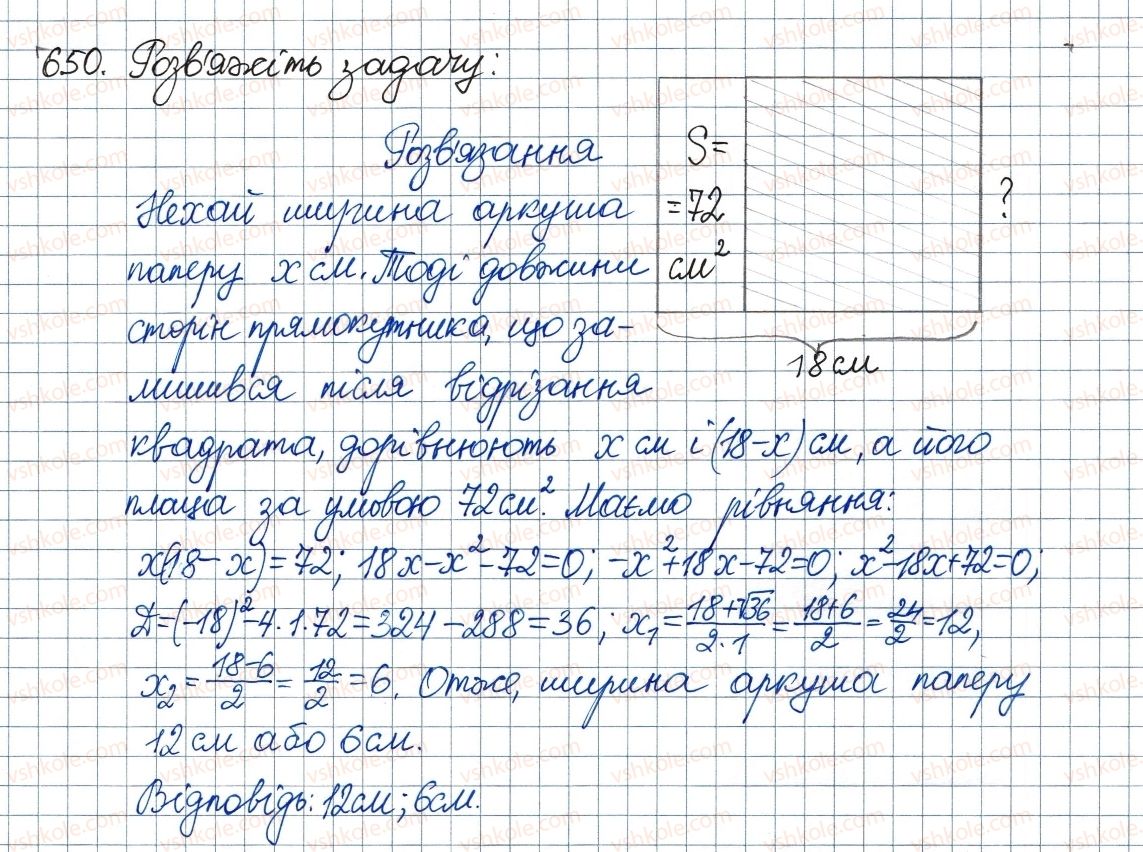 650. Розв'яжіть задачу:
Розв'язання
Нехай ширина аркуша
паперу x см. Тоді довжини
сторін прямокутника, що за-
лишився після відрізання
квадрата, дорівнюють x см і (18-x) см, а його
площа за умовою 72 см². Маємо рівняння:
x(18-x)=72; 18x-x²-72=0; -x²+18x-72=0; x²-18x+72=0;
Д=(-18)²-4·1·72=324-288=36; x₁=(18+√36)/(2·1)=(18+6)/2=24/2=12,
x₂=(18-6)/2=12/2=6. Отже, ширина аркуша паперу
12 см або 6 см.
Відповідь: 12 см; 6 см.
S=
=72
см²
?
18 см